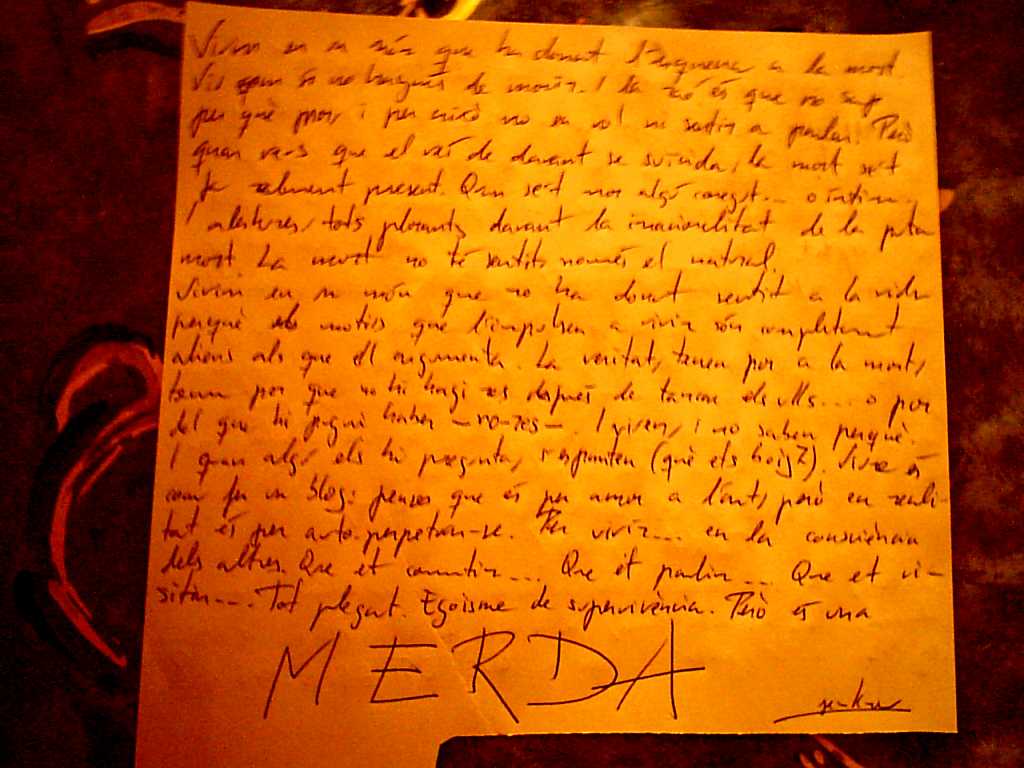 Vivim en un món que ha donat l'esquena a la mort.
Viu com si no hagués de morir. I la raó és que no sap
per què mor, i per això no en vol ni sentir a parlar. Però
quan veus que el veí de davant se suicida, la mort se't
fa realment present. Quan se't mor algú conegut... o íntim.
I aleshores, tots plorant davant la irracionalitat de la puta
mort. La mort no té sentit, només el natural.
Vivim en un món que no ha donat sentit a la vida
perquè els motius que l'empulsen a viure són completament
aliens als que ell argumenta. La veritat, tenen por a la mort,
tenen por que no hi hagi res després de tancar els ulls... o por
del que hi pugui haber -no-res-. I viven, i no saben perquè.
I quan algú els hi pregunta, s'espanten (què ets boig?). Viure és
com fer un blog: penses que és per amor a l'art, però en reali-
tat és per auto-perpetuar-se. Per viure... en la consciència
dels altres. Que et comentin... Que et parlin... Que et vi-
sitin... Tot plegat. Egoisme de supervivència. Però és una
MERDA